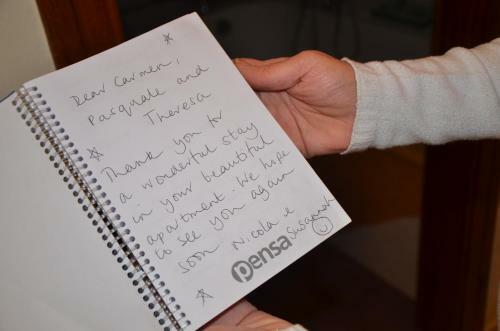 Dear Carmen,
Pasquale and
Theresa
Thank you for
a wonderful stay
in your beautiful
apartment. We hope
to see you again
soon. Nicola e
Susannah
pensa